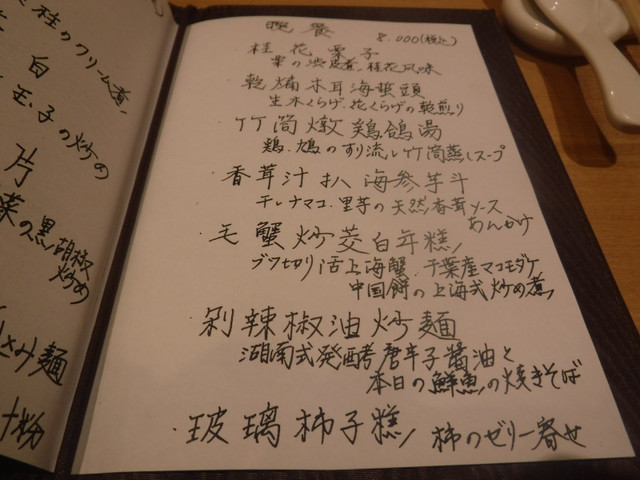 桂のクリーム煮
白
玉子の炒め
片
菜の黒胡椒
炒め
麺
粉
晩餐 8.000(税込)
桂花栗子
栗の渋皮煮、桂花風味
乾煸木耳海蜇頭
生木くらげ、花くらげの乾煎り
竹筒燉鶏鴿湯
鶏、鳩のすり流し竹筒蒸しスープ
香茸汁扒海参芋斗
干しナマコ、里芋の天然香茸ソース
あんかけ
毛蟹炒茭白年糕
ブツ切り活上海蟹、千葉産マコモダケ
中国餅の上海式炒め煮
剁辣椒油炒麺
湖南式発酵唐辛子醤油と
本日の鮮魚の焼きそば
玻璃柿子糕 柿のゼリー寄せ